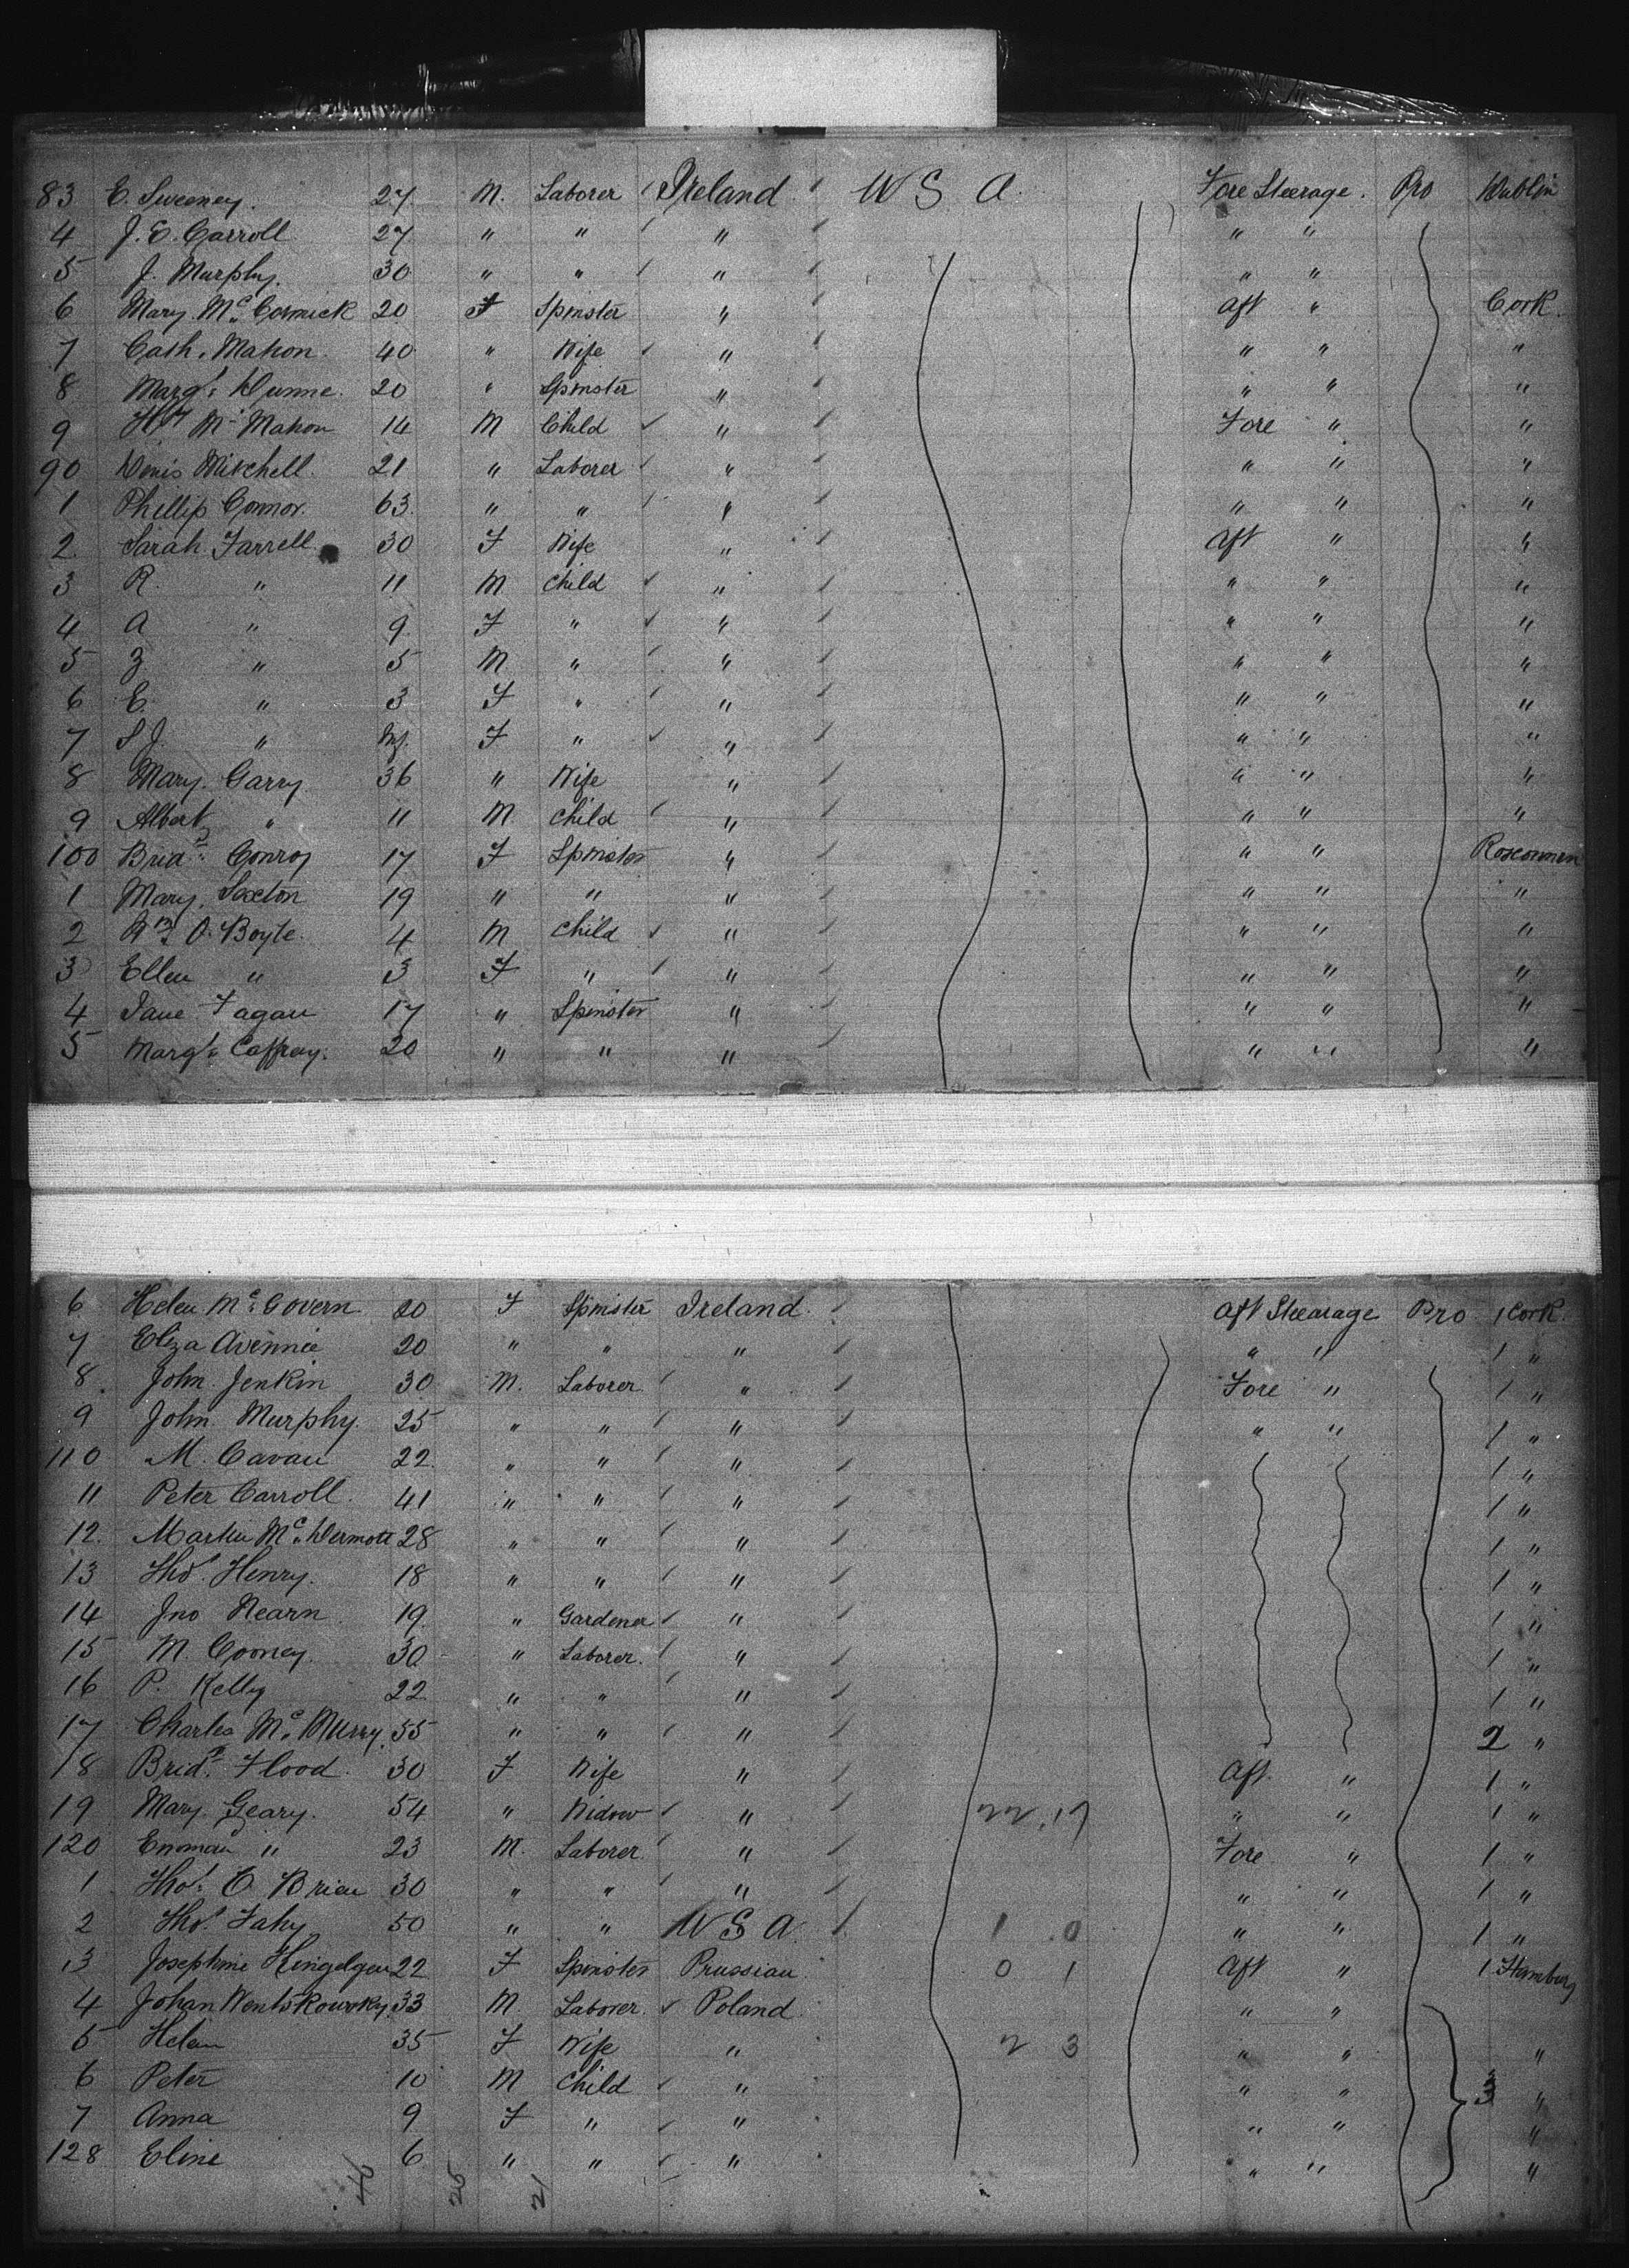 83 E. Sweeney. 27 M. Laborer Ireland U S A. Fore Steerage. Pro Dublin
4 J. E. Carroll 27 " " " " "
5 J. Murphy. 30 " " " " "
6 Mary Mc Cormick 20 F Spinster " Aft " Cork.
7 Cath. Mahon 40 " Wife " " " "
8 Margt Dunne. 20 " Spinster " " " "
9 Mc Mahon 14 M Child " Fore " "
90 Denis Mitchell. 21 " Laborer " " " "
1 Phillip Connor. 63. " " " " " "
2. Sarah Farrell 30 F Wife " Aft " "
3 R. " 11 M Child " " " "
4 A " 9 F " " " " "
5 Z " 5 M " " " " "
6 E. " 3 F " " " " "
7 S J. " Inf. F " " " " "
8 Mary Garry 36 " Wife " " " "
9 Albert " 11 M Child " " " "
100 Bridt Conroy 17 F Spinster " " " Roscommon
1 Mary Sexton 19 " " " " " "
2 O. Boyle. 4 M Child " " " "
3 Ellen " 3 F " " " " "
4 Jane Fagan 17 " Spinster " " " "
5 Margt Caffray. 20 " " " " " "
6 Helen Mc Govern 20 F Spinster Ireland. Aft Steerage Pro 1 Cork.
7 Eliza Avinnie 20 " " " " " 1 "
8. John Jenkin 30 M. Laborer " Fore " 1 "
9 John Murphy. 25 " " " " " 1 "
110 M. Cavan 22. " " " 1 "
11 Peter Carroll. 41 " " " 1 "
12. Martin Mc Dermott 28 " " " 1 "
13 Thos. Henry. 18 " " " 1 "
14 Jno Hearn 19. " Gardener " 1 "
15 M. Cooney. 30 " Laborer. " 1 "
16 P. Kelly 22 " " " 1 "
17 Charles Mc Murry. 55 " " " 2 "
18 Bridt Flood. 30 F Wife " Aft. " 1 "
19 Mary Geary. 54 " Widow " 22.17 " " 1 "
120 " 23 M. Laborer. " Fore " 1 "
1 Thos. O Brien 30 " " " " " 1 "
2 Thos. Fahy 50 " " U S A. 1 0 " " 1 "
3 Josephine 22 F Spinster Prussian 0 1 Aft " 1 Hamburg
4 Johan Wentskowsky. 33 M. Laborer. Poland. " "
5 Helen 35 F Wife " 2 3 " " "
6 Peter 10 M Child " " " 3 "
7 Anna 9 F " " " " "
128 Eline 6 " " " " " "
46 25 21